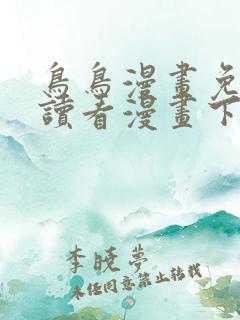 鳥鳥漫畫免
讀看漫畫下
李曉夢
未經同意禁止轉載